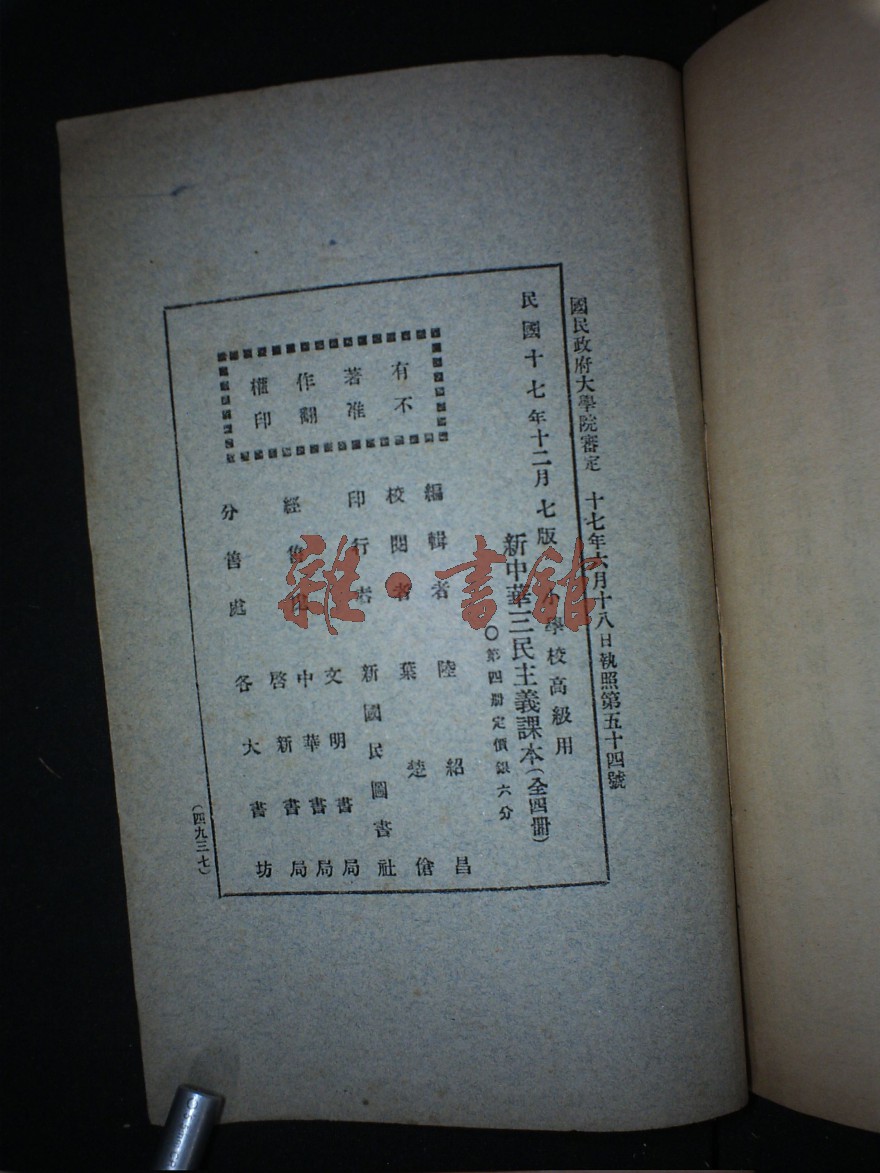 國民政府大學院審定 十七年六月十八日執照第五十四號
民國十七年十二月七版
小學校高級用
新中華三民主義課本(全四冊)
○第四册定價銀六分
編輯者 陸紹昌
校閱者 葉楚傖
印行者 新國民圖書社
經售處 文明書局
中華書局
啓新書局
分售處 各大書坊
有著作權
不准翻印
(四九三七)
雜·書館